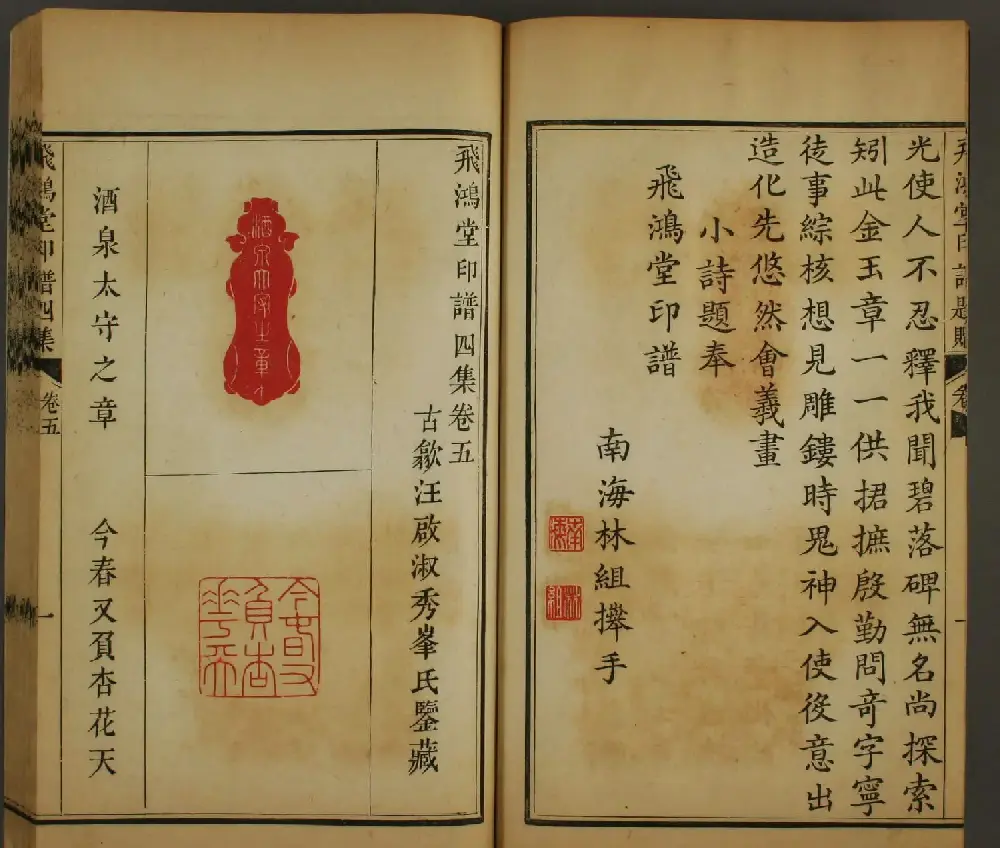 飛鴻堂印譜題
光使人不忍釋我聞碧落碑無名尚探索
矧此金玉章一一供捃摭殷勤問竒字寧
徒事綜核想見雕鏤時鬼神入使役意出
造化先悠然會羲畫
小詩題奉
飛鴻堂印譜
南海林組攑手
南海
林組
飛鴻堂印譜四集卷五
古歙汪啟淑秀峯氏鑒藏
酒泉太守之章
今春又負杏花天
酒泉太守之章
今春又負杏花天
飛鴻堂印譜四集
卷五
一